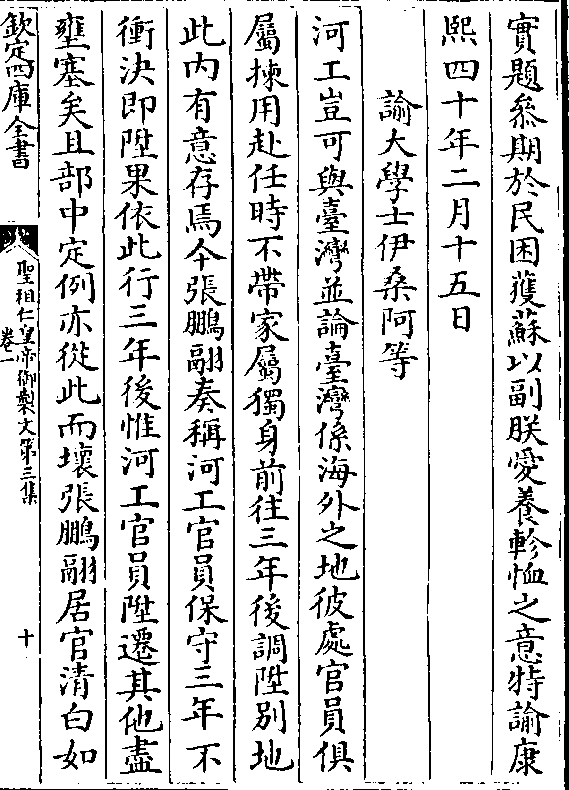 實題叅期於民困獲蘇以副朕愛養軫恤之意特諭康
熙四十年二月十五日
諭大學士伊桑阿等
河工豈可與臺灣並論臺灣係海外之地彼處官員俱
屬揀用赴任時不帶家屬獨身前往三年後調陞別地
此內有意存焉今張鵬翮奏稱河工官員保守三年不
衝決即陞果依此行三年後惟河工官員陞遷其他盡
壅塞矣且部中定例亦從此而壞張鵬翮居官清白如
欽定四庫全書
聖祖仁皇帝御製文第三集
卷一
十